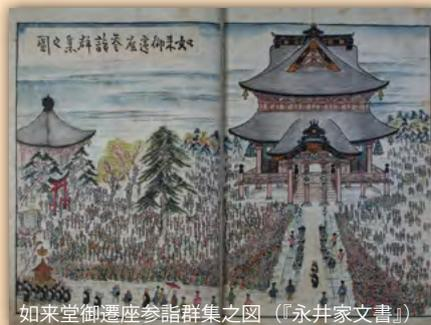 如来御遷座参詣群集之圖
如来堂御遷座参詣群集之図（『永井家文書』）